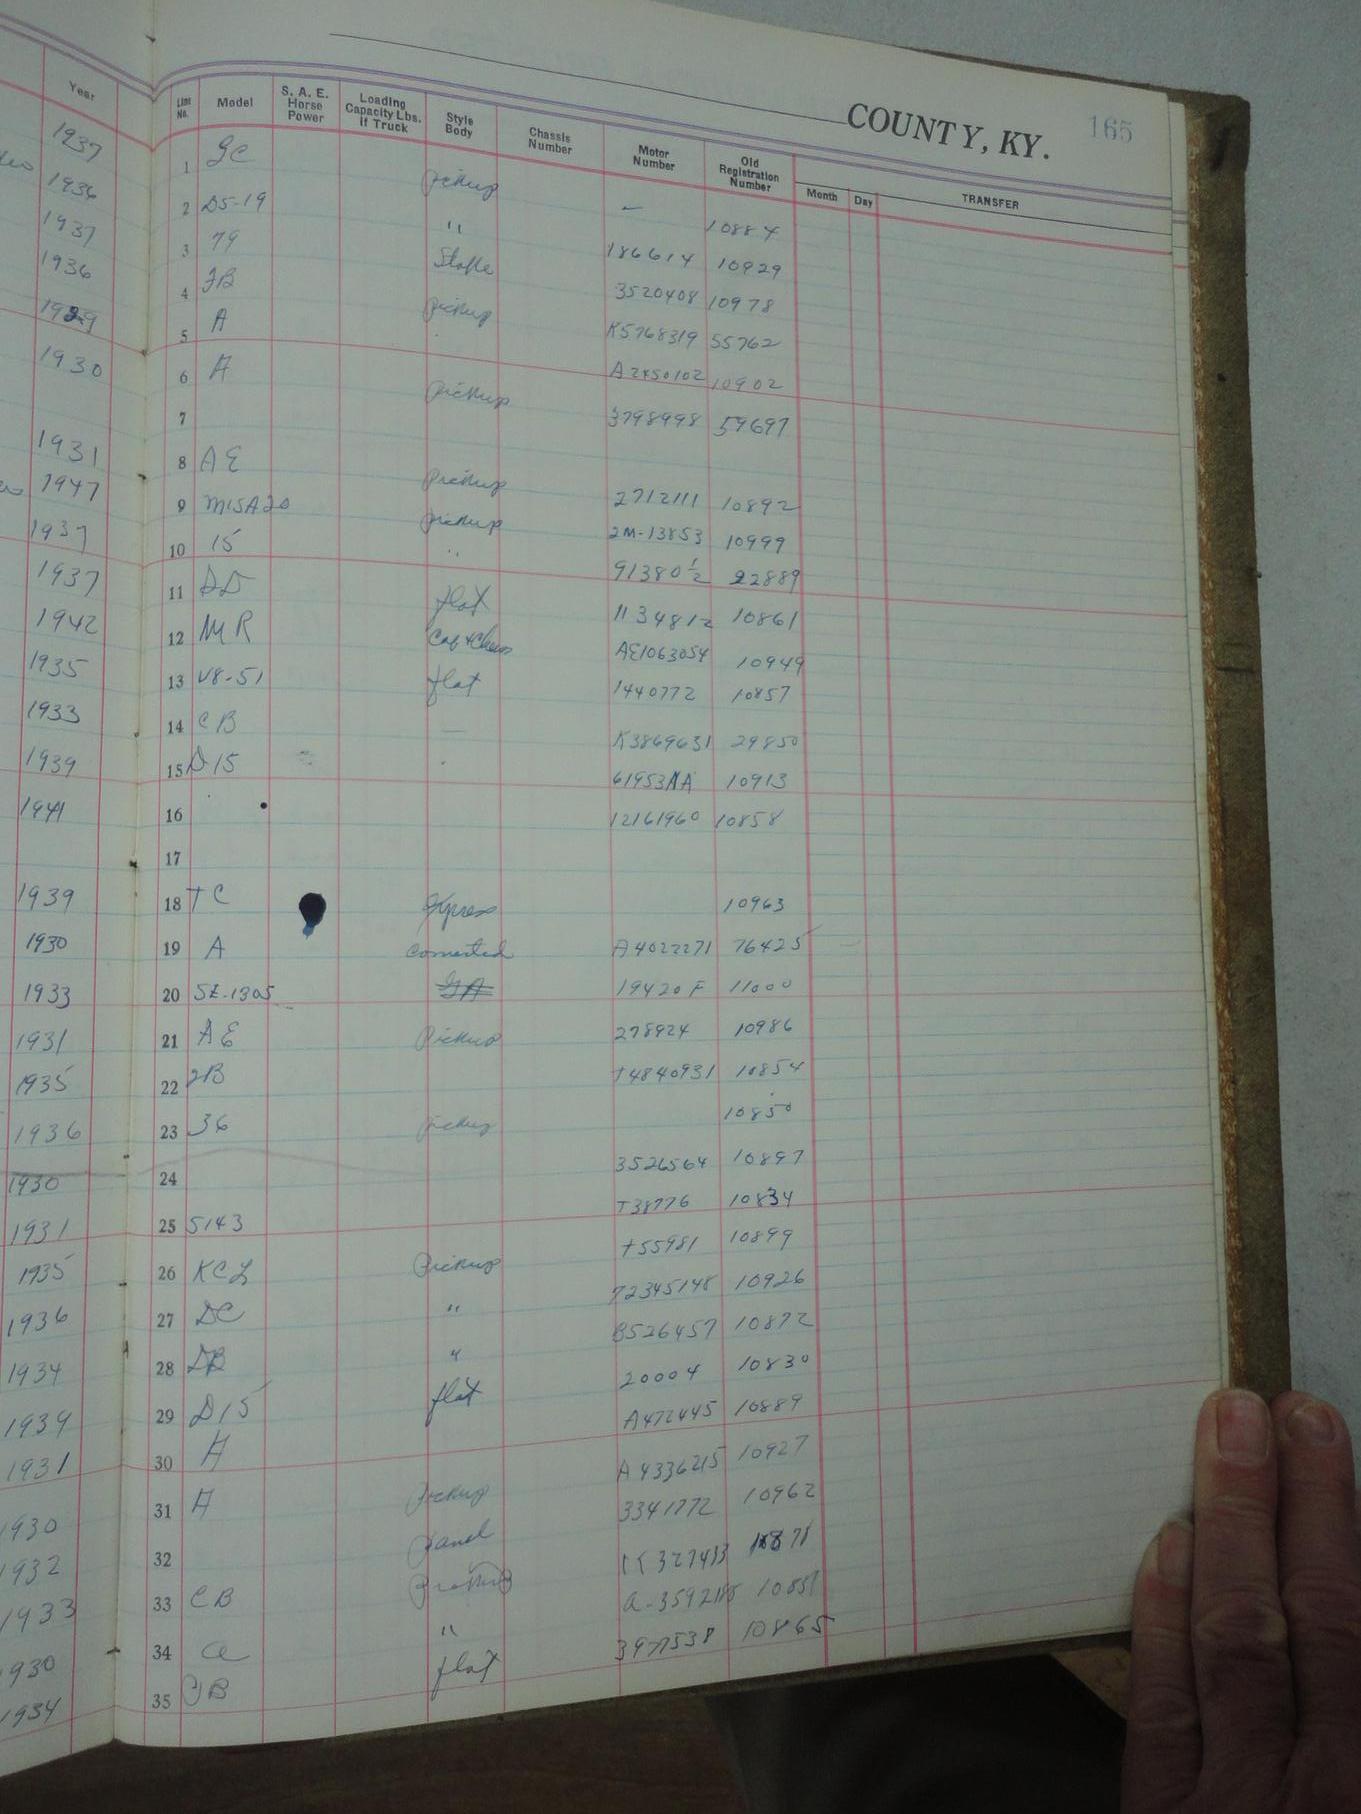 COUNTY, KY. 165
Year
Line No. Model S. A. E. Horse Power Loading Capacity Lbs. If Truck Style Body Chassis Number Motor Number Old Registration Number Month Day TRANSFER
1937 1 GC Pickup — 10884
1936 2 D5-19 " 186614 10929
1937 3 79 Stake 3520408 10978
1936 4 FB Pickup K5768319 55762
1929 5 A A2450102 10902
1930 6 A Pickup 3798998 59697
7
1931 8 AE Pickup 2712111 10892
1947 9 M15A20 Pickup 2M-13853 10999
1937 10 15 " 91380½ 22889
1937 11 DD flat 1134812 10861
1942 12 MR Cab + Chass AE1063054 10949
1935 13 V8-51 flat 1440772 10857
1933 14 CB — K3869631 29850
1939 15 D15 61953NA 10913
1941 16 12161960 10858
17
1939 18 TC Express 10963
1930 19 A converted A4022271 76425
1933 20 SE-1305 19420F 11000
1931 21 AE Pickup 278924 10986
1935 22 2B T4840931 10854
1936 23 36 Pickup 10850
1930 24 3526564 10897
1931 25 5143 T38776 10834
1935 26 KCL Pickup T55981 10899
1936 27 DC " 72345148 10926
1934 28 DB " B526457 10872
1939 29 D15 flat 20004 10830
1931 30 A A472445 10889
1930 31 A Pickup A4336215 10927
1932 32 Panel 3341772 10962
1933 33 CB K327433
1930 34 a " 10851
1934 35 B flat 3977538 10865